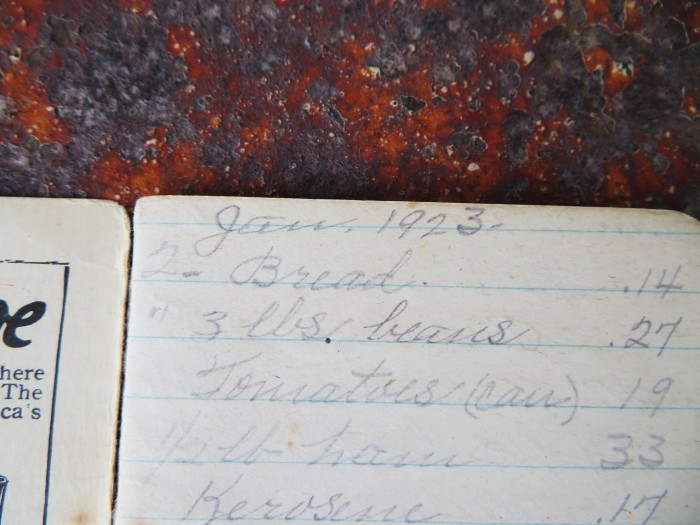 e
here
The
ca's
Jan. 1923.
2- Bread .14
" 3 lbs beans .27
Tomatoes (can) 19
1/2 lb ham 33
Kerosene .17